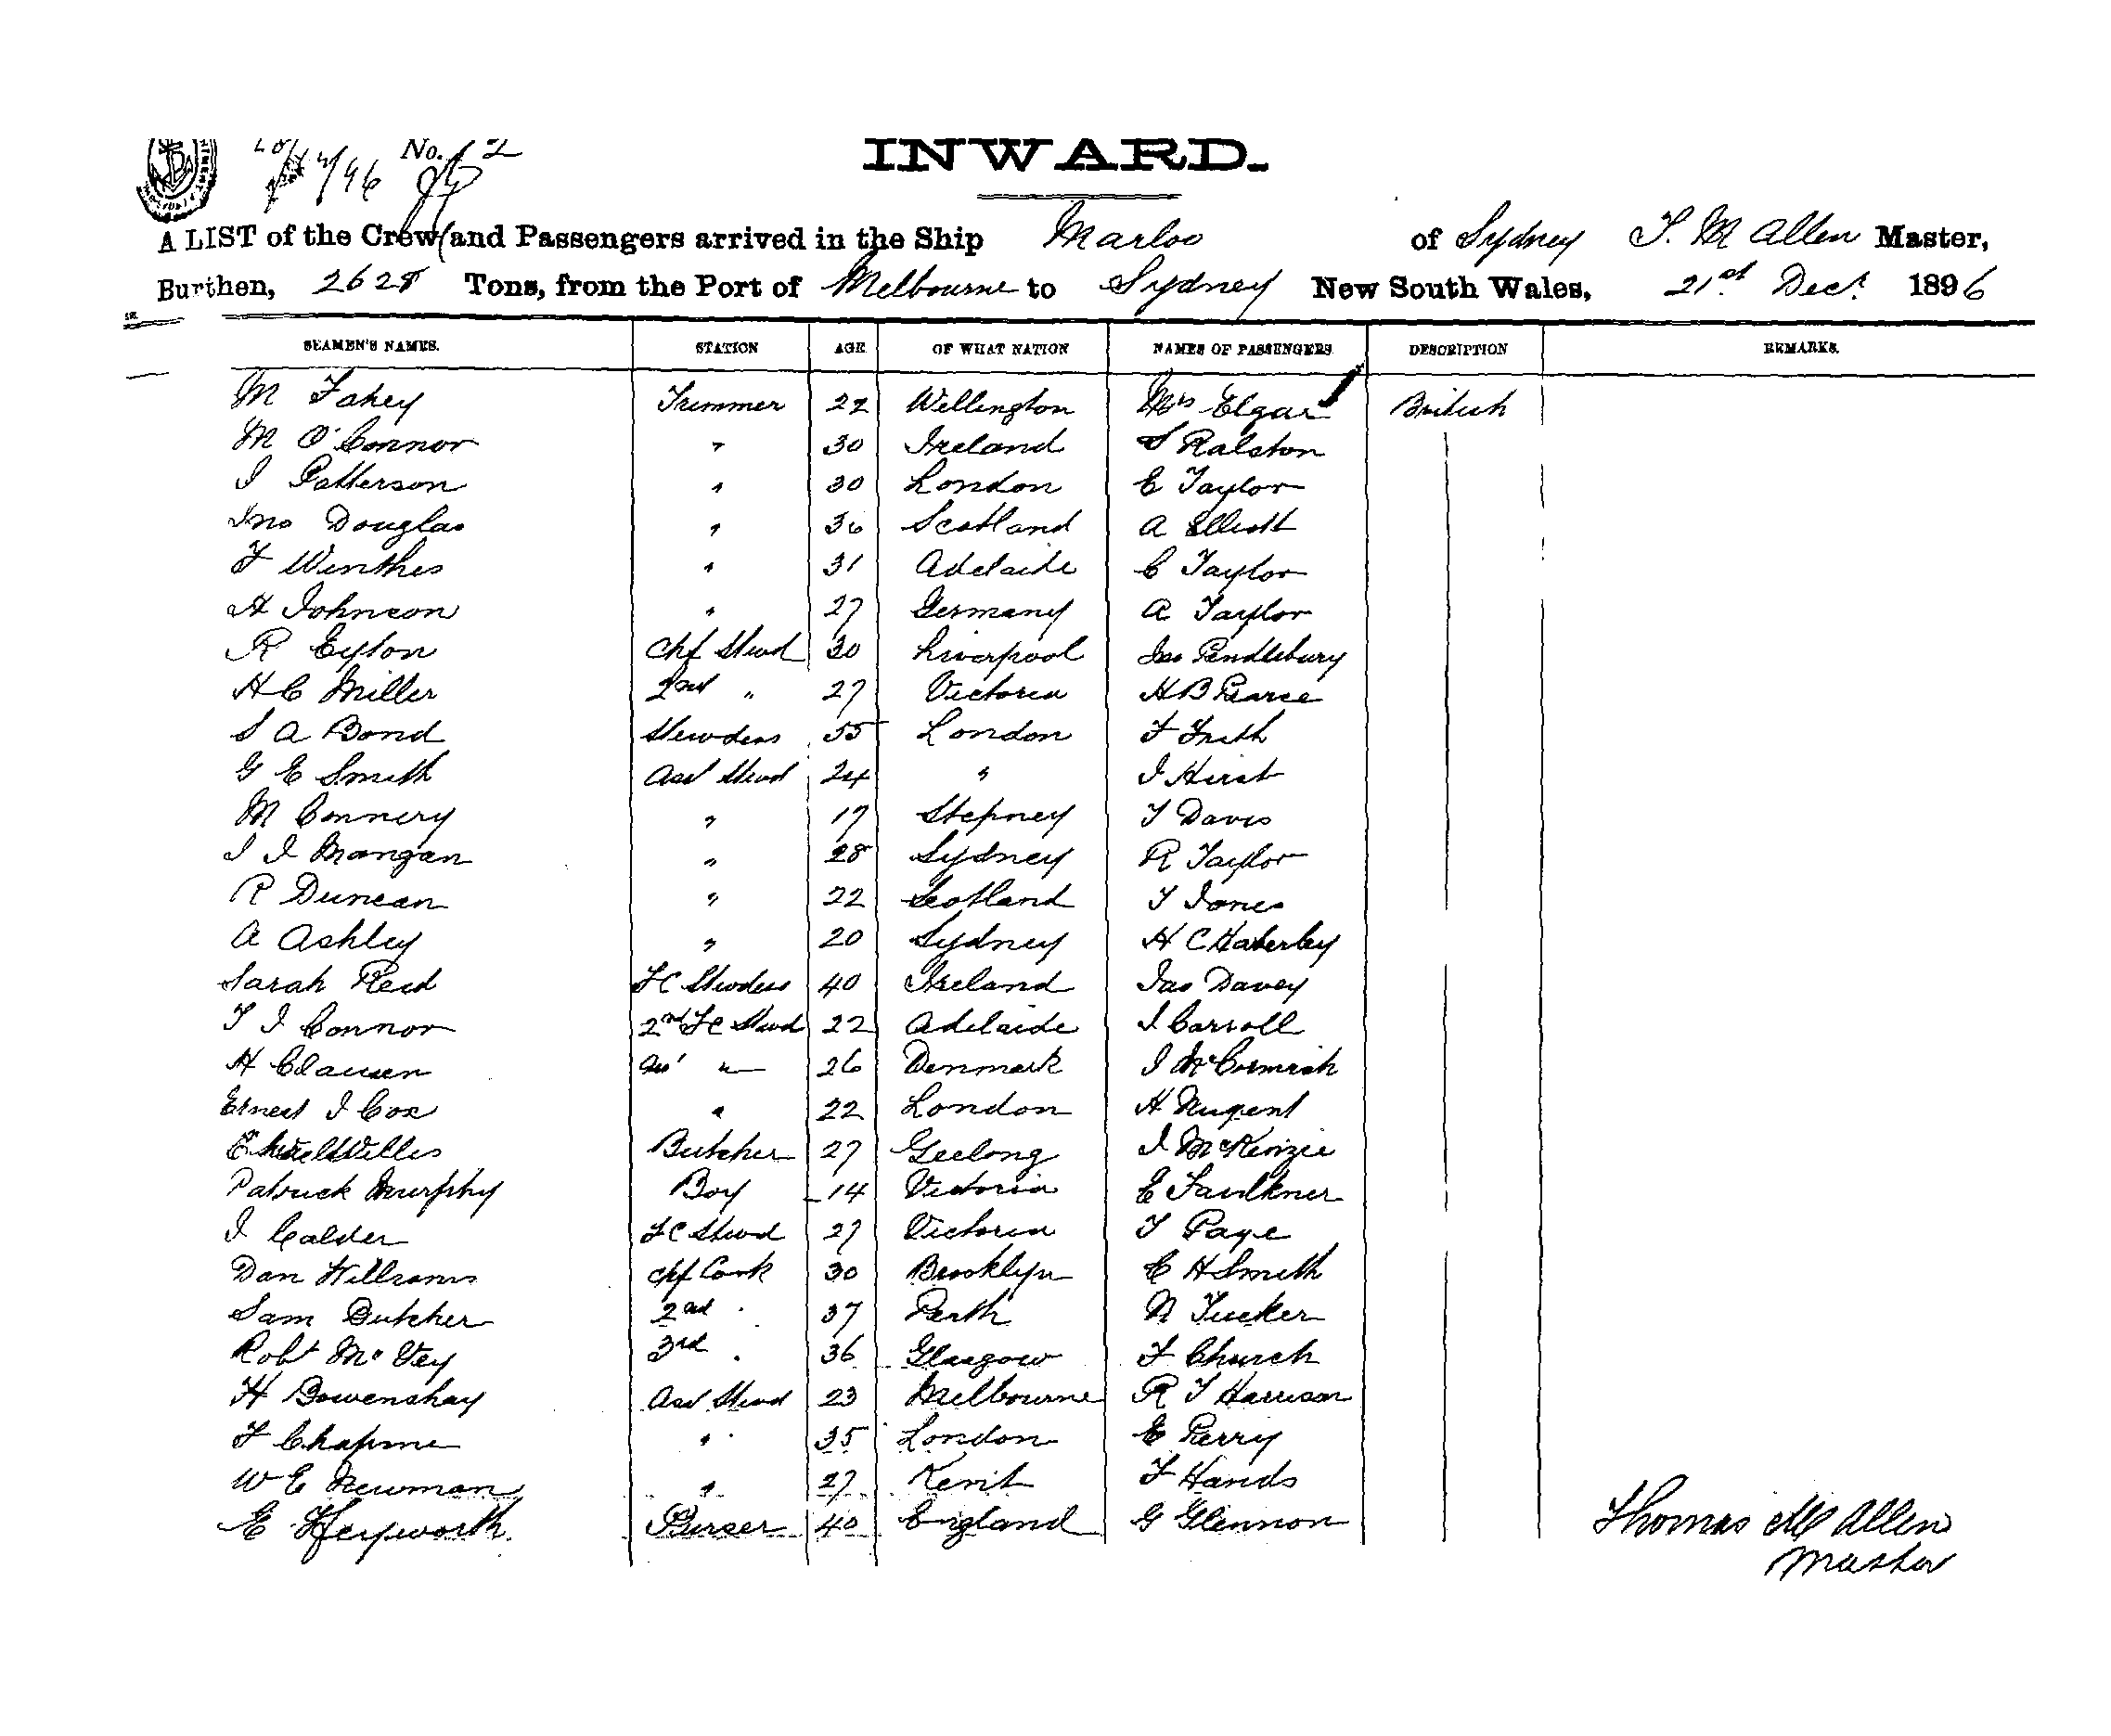 No. 2
INWARD.
A LIST of the Crew and Passengers arrived in the Ship Marloo of Sydney T. M Allen Master,
Burthen, 2628 Tons, from the Port of Melbourne to Sydney New South Wales, 21st Decr. 1896
SEAMEN'S NAMES. STATION AGE OF WHAT NATION NAMES OF PASSENGERS DESCRIPTION REMARKS.
M Fahey Trimmer 22 Wellington Mrs Elgar British
M O'Connor " 30 Ireland S Ralston
J Patterson " 30 London E Taylor
Jno Douglas " 36 Scotland A Elliott
F Winthes " 31 Adelaide C Taylor
A Johnson " 27 Germany A Taylor
R Eyton Chf Stwd 30 Liverpool Jas Pendlebury
H C Miller 2nd " 27 Victoria H B Pearce
S A Bond Stewdess 55 London F Frith
G E Smith Asst Stwd 24 " J Hirst
M Connery " 17 Stepney T Davis
J J Mangan " 28 Sydney R Taylor
R Duncan " 22 Scotland T Jones
A Ashley " 20 Sydney H C Haberley
Sarah Reid FC Stewdess 40 Ireland Jas Davey
T J Connor 2nd FC Stwd 22 Adelaide J Carroll
H Clausen Ass' " 26 Denmark J McCormick
Ernest J Cox " 22 London H Nugent
Willis Butcher 27 Geelong J McKenzie
Patrick Murphy Boy 14 Victoria E Faulkner
J Calder FC Stwd 27 Victoria T Page
Dan Williams Chf Cook 30 Brooklyn C H Smith
Sam Butcher 2nd " 37 Perth N Tucker
Robt McVey 3rd " 36 Glasgow F Church
H Bowenshay Asst Stwd 23 Melbourne R T Harrison
F Chapme " 35 London E Perry
W E Newman " 27 Kent F Hands
E Heyworth Purser 40 England G Glennon
Thomas M Allen
Master